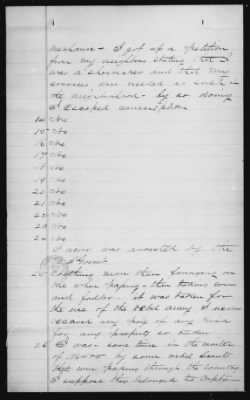 mechanic - I got up a petition
from my neighbors stating that I
was a shoemaker and that my
services were needed as such in
the neighborhood - by so doing
I escaped conscription
14 No
15 No
16 No
17 No
18 No
19 No
20 No
21 No
22 No
23 No
24 No
I never was arrested by the
Govmt
25 Nothing more than foraging on
me when passing - then taking corn
and fodder - it was taken for
the use of the rebel army I never
received any pay of any kind
for any property so taken
26 I was some time in the
by some rebel Scouts
that were passing through the country
I suppose they belonged to